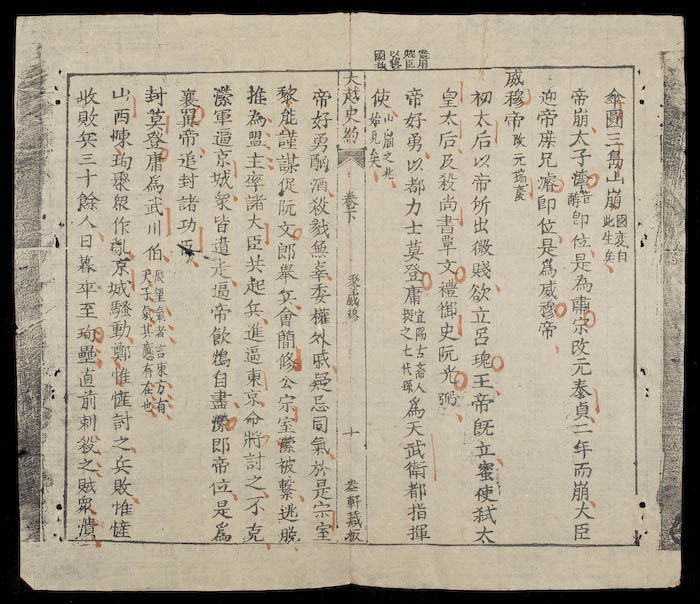 傘圓三島山崩國変自此生矣
帝崩太子㵮音酶即位是為肅宗改元泰貞二年而崩大臣
迎帝庶兄濬即位是爲威穆帝
威穆帝改元瑞慶
初太后以帝所出微賤欲立呂瑰王帝既立蜜使弑太
皇太后及殺尚書覃文禮御史阮光弼
帝好勇以都力士莫登庸宜陽古斎人挺之七代孫爲天武衛都指揮
使山崩之兆始見矣
大越史約
卷下
黎威穆
十
帝好勇酗酒殺戮無辜委權外戚疑忌同氣於是宗室
黎能謹謀促阮文郎舉兵會簡修公宗室瀠被繫逃脫
推為盟主率諸大臣共起兵進逼東京命將討之不克
瀠軍逼京城衆皆遺走逼帝飲鴆自盡瀠即帝位是為
襄翼帝追封諸功臣
封莫登庸爲武川伯辰望氣者言東方有天子氣其應有在也
山西陳珣聚衆作亂京城騷動鄭惟㠅討之兵敗惟㠅
收敗兵三十餘人日暮卒至珣壘直前刺殺之賊衆潰